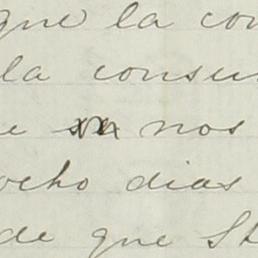 que la con
la consu
e en nos
ocho dias
de que St